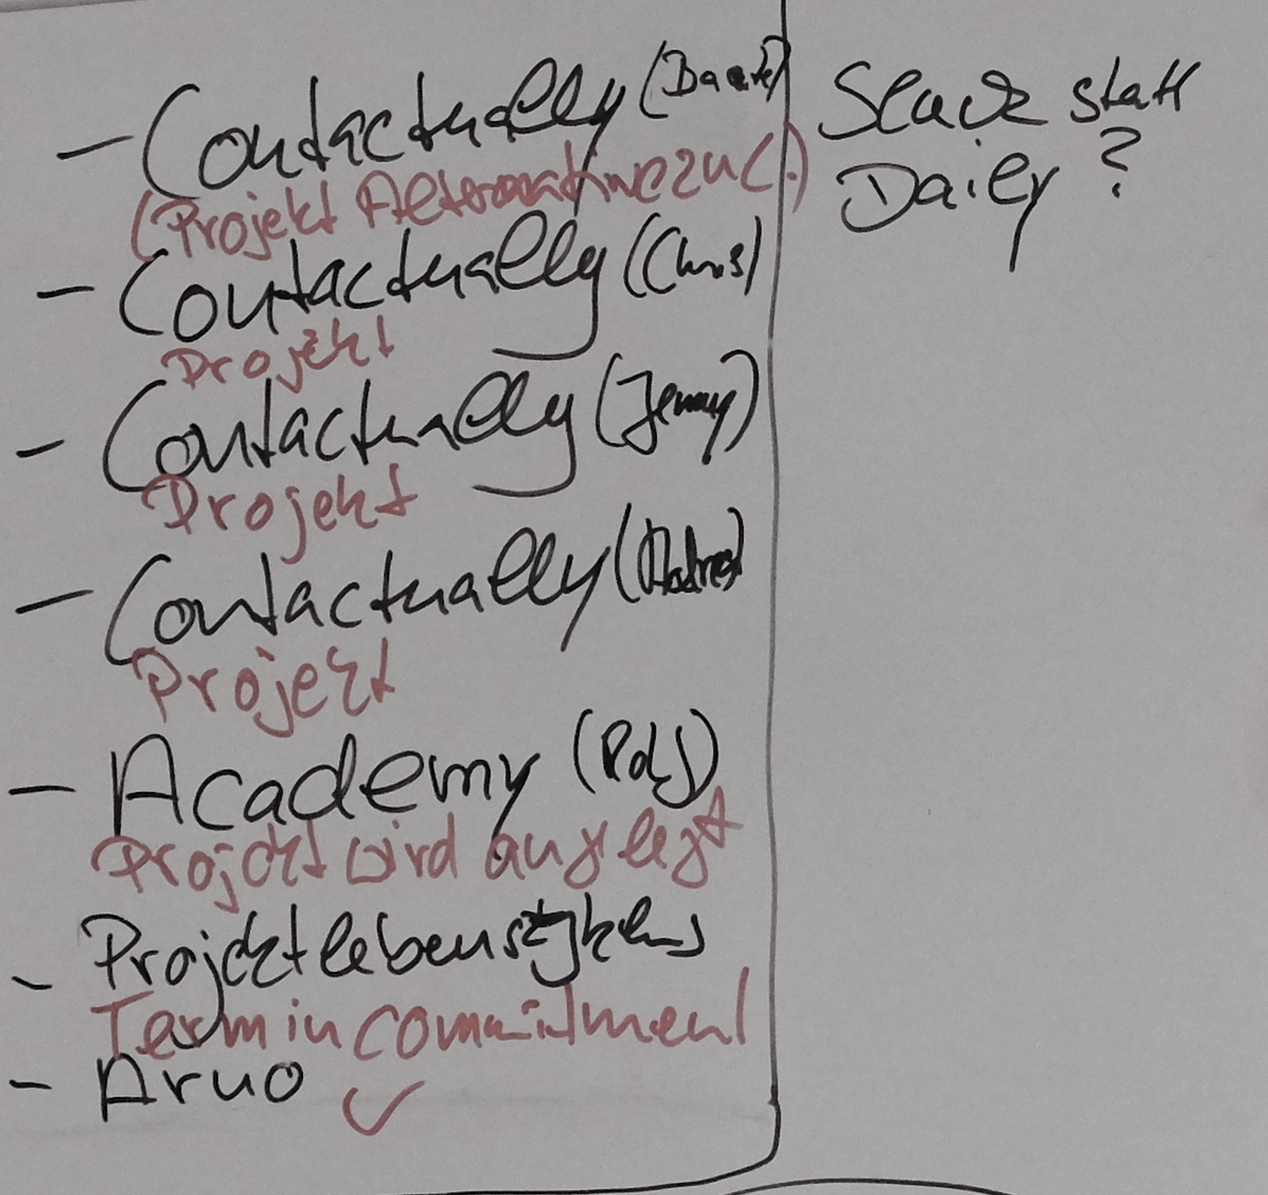 - Contactually
(Projekt Alternative zu C.)
- Contactually (Chris)
Projekt
- Contactually (Jenny)
Projekt
- Contactually
Projekt
- Academy
Projekt wird angelegt
- Projektlebenszyklus
Termincommitment
- Arno ✓
Slack statt
Daily ?